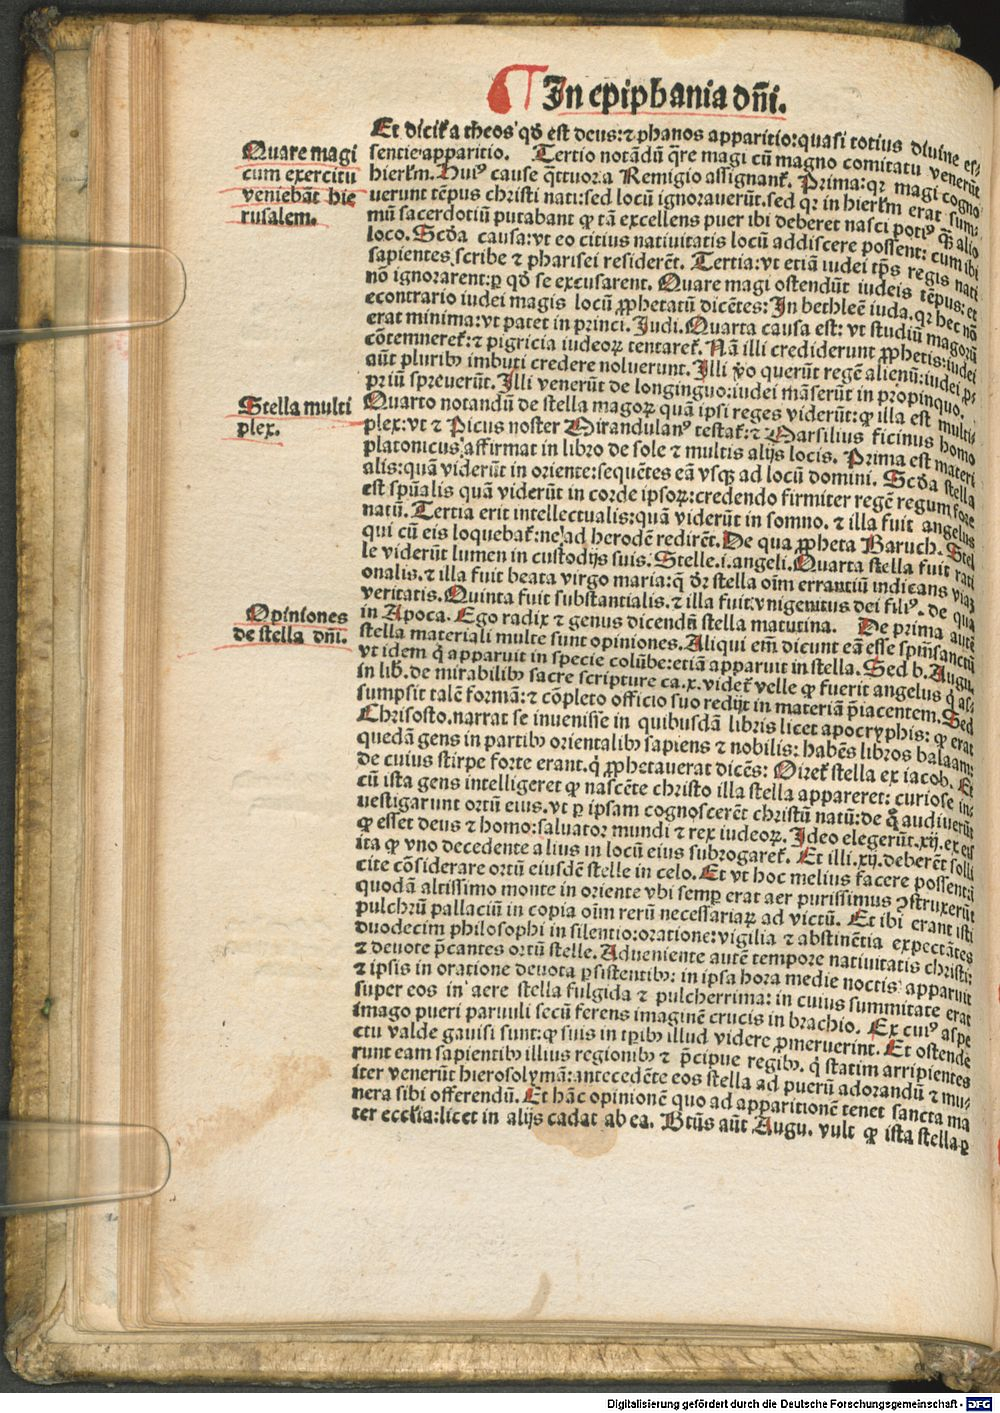 In epiphania dñi.
Et dicit̃ a theos qđ est deus: ⁊ phanos apparitio: quasi totius diuine es
Quare magi
cum exercitu
veniebãt hie
rusalem.
sentie apparitio. Tertio notãdũ q̃re magi cũ magno comitatu venerũt
hierl̃m. Huiꝰ cause q̃ttuor a Remigio assignant̃. Prima: qꝛ magi cogno
uerunt tẽpus christi nati: sed locũ ignorauerũt. sed qꝛ in hierl̃m erat sum⸗
mũ sacerdotiũ putabant ꝙ tã excellens puer ibi deberet nasci potiꝰ q̃ꝫ alio
loco. Scđa causa: vt eo citius natiuitatis locũ addiscere possent: cum ibi
sapientes scribe ⁊ pharisei residerẽt. Tertia: vt etiã iudei tp̃s regis nati
nõ ignorarent: ꝑ qđ se excusarent. Quare magi ostendũt iudeis tẽpus: et
econtrario iudei magis locũ ꝓphetatũ dicẽtes: In bethleẽ iuda. qꝛ hec nõ
erat minima: vt patet in princi. Iudi. Quarta causa est: vt studiũ magorũ
cõtemneret̃: ⁊ pigricia iudeoꝝ tentaret̃. Nã illi crediderunt ꝓphetis: iudei
aũt pluribꝰ imbuti credere noluerunt. Illi ṽo querũt regẽ alienũ: iudei ꝓ⸗
priũ spreuerũt. Illi venerũt de longinguo: iudei mãserũt in propinquo.
Stella multi
plex.
Quarto notandũ de stella magoꝝ quã ipsi reges viderũt: ꝙ illa est multi⸗
plex: vt ⁊ Picus noster Mirandulanꝰ testat̃: ⁊ Marsilius ficinus homo
platonicus affirmat in libro de sole ⁊ multis alijs locis. Prima est materi
alis: quã viderũt in oriente: sequẽtes eã vsqꝫ ad locũ domini. Scđa stella
est spũalis quã viderũt in corde ipsoꝝ: credendo firmiter regẽ regum fore
natũ. Tertia erit intellectualis: quã viderũt in somno. ⁊ illa fuit angelus
qui cũ eis loquebat̃: ne ad herodẽ redirẽt. De qua ꝓpheta Baruch. Stel
le viderũt lumen in custodijs suis. Stelle .i. angeli. Quarta stella fuit rati
onalis. ⁊ illa fuit beata virgo maria: q̃ dr̃ stella oĩm errantiũ indicans viaꝫ
veritatis. Quinta fuit substantialis. ⁊ illa fuit vnigenitus dei filiꝰ. de qua
Opiniones
de stella dñi.
in Apoca. Ego radix ⁊ genus dicendñ stella matutina. De prima autẽ
stella materiali multe sunt opiniones. Aliqui em̃ dicunt eã esse spm̃sanctũ
vt idem q̃ apparuit in specie colũbe: etiã apparuit in stella. Sed b. Augu.
in lib. de mirabilibꝰ sacre scripture ca. x. videt̃ velle ꝙ fuerit angelus q̃ as⸗
sumpsit talẽ formã: ⁊ cõpleto officio suo redijt in materiã p̃iacentem. Sed
Chrisosto. narrat se inuenisse in quibusdã libris licet apocryphis: ꝙ erat
quedã gens in partibꝰ orientalibꝰ sapiens ⁊ nobilis: habẽs libros balaam:
de cuius stirpe forte erant. q̃ ꝓphetauerat dicẽs: Oriet̃ stella ex iacob. Et
cũ ista gens intelligeret ꝙ nascẽte christo illa stella appareret: curiose in⸗
uestigarunt ortũ eius. vt ꝑ ipsam cognoscerẽt christũ natũ: de q̃ audiuerũt
ꝙ esset deus ⁊ homo: saluator mundi ⁊ rex iudeoꝝ. Ideo elegerũt .xij. ex eis
ita ꝙ vno decedente alius in locũ eius subrogaret̃. Et illi .xij. deberẽt solli
cite cõsiderare ortũ eiusdẽ stelle in celo. Et vt hoc melius facere possent: ĩ
quodã altissimo monte in oriente vbi semꝑ erat aer purissimus ꝯstruxerũt
pulchrũ pallaciũ in copia oĩm rerũ necessariaꝝ ad victũ. Et ibi erant isti
duodecim philosophi in silentio: oratione: vigilia ⁊ abstinẽtia expectãtes
⁊ deuote p̃cantes ortũ stelle. Adueniente autẽ tempore natiuitatis christi:
⁊ ipsis in oratione deuota ꝑsistentibꝰ: in ipsa hora medie noctis apparuit
super eos in aere stella fulgida ⁊ pulcherrima: in cuius summitate erat
imago pueri paruuli secũ ferens imaginẽ crucis in brachio. Ex cuiꝰ aspe
ctu valde gauisi sunt: ꝙ suis in tꝑibꝰ illud videre ꝓmeruerint. Et ostende
runt eam sapientibꝰ illius regionibꝰ ⁊ p̃cipue regibꝰ. q̃ statim arripientes
iter venerũt hierosolymã: antecedẽte eos stella ad puerũ adorandũ ⁊ mu⸗
nera sibi offerendũ. Et hãc opinionẽ quo ad apparitionẽ tenet sancta ma
ter eccl̃ia: licet in alijs cadat ab ea. Btũs aũt Augu. vult ꝙ ista stella ꝑ
Digitalisierung gefördert durch die Deutsche Forschungsgemeinschaft - DFG